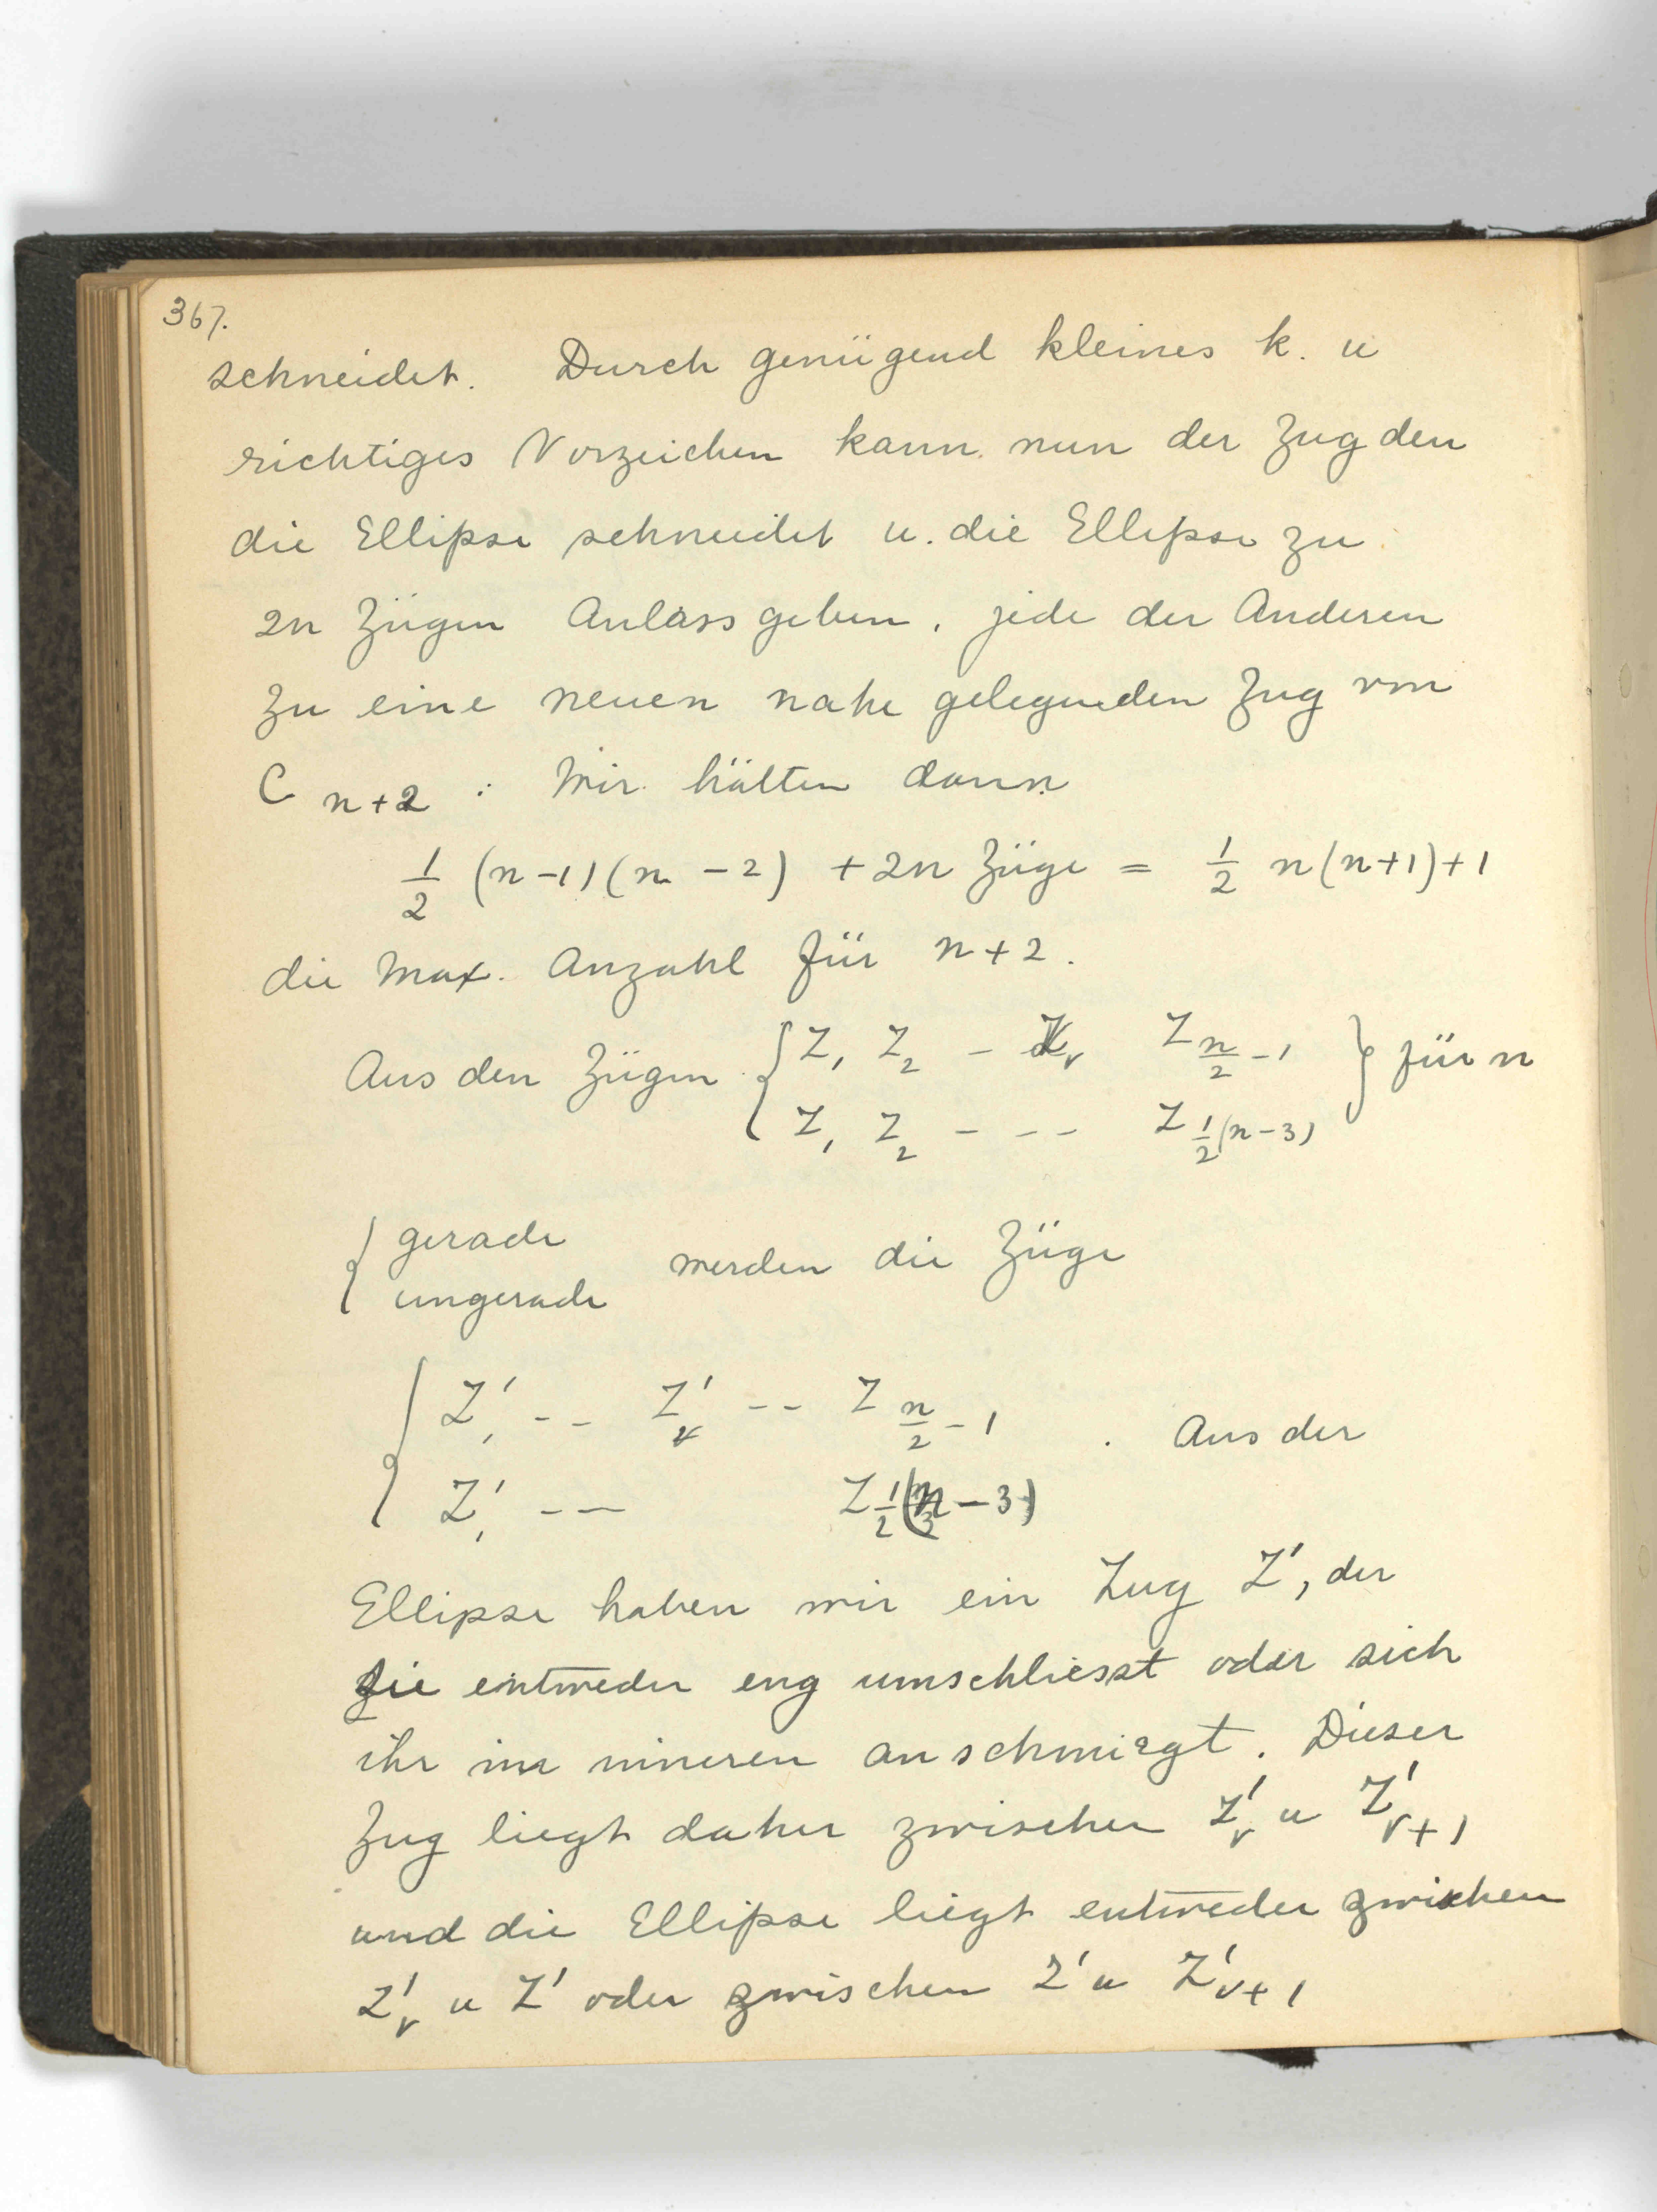 367.
schneidet. Durch genügend kleines k. u
richtiges Vorzeichen kann nun der Zug den
die Ellipse schneidet u. die Ellipse zu
2n Zügen Anlass geben, jede der Anderen
zu eine neuen nahe gelegenden Zug von
C n+2 : Wir hätten dann
1/2 (n-1)(n-2) + 2n Züge = 1/2 n(n+1)+1
die Max. Anzahl für n+2.
Aus den Zügen { Z₁ Z₂ – Zᵥ Z n/2 -1 } für n
Z₁ Z₂ – – – Z 1/2(n-3)
{ gerade
ungerade werden die Züge
{ Z'₁ – – Z'ᵥ – – Z n/2 -1 . Aus der
Z'₁ – – Z 1/2(n-3)
Ellipse haben wir ein Zug Z', der
sie entweder eng umschliesst oder sich
ihr im inneren anschmiegt. Dieser
Zug liegt daher zwischen Z'ᵥ u Z'ᵥ+1
und die Ellipse liegt entweder zwischen
Z'ᵥ u Z' oder zwischen Z' u Z'ᵥ+1